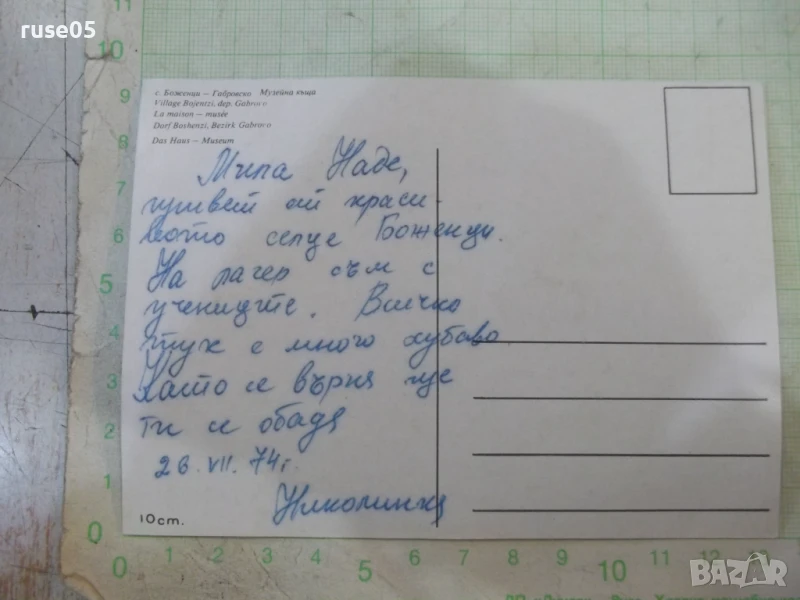 ruse05
с. Боженци — Габровско Музейна къща
Village Bojentzi, dep. Gabrovo
La maison — musée
Dorf Boshenzi, Bezirk Gabrovo
Das Haus — Museum
Мила Наде,
привет от краси-
вото селце Боженци.
На лагер съм с
учениците. Всичко
тук е много хубаво
Като се върна ще
ти се обадя
26. VII. 74 г.
Николинка
10 cm.
11
9
8
7
6
5
4
3
2
1
0
0 1 2 3 4 5 6 7 8 9 10 11 12
BAZAR